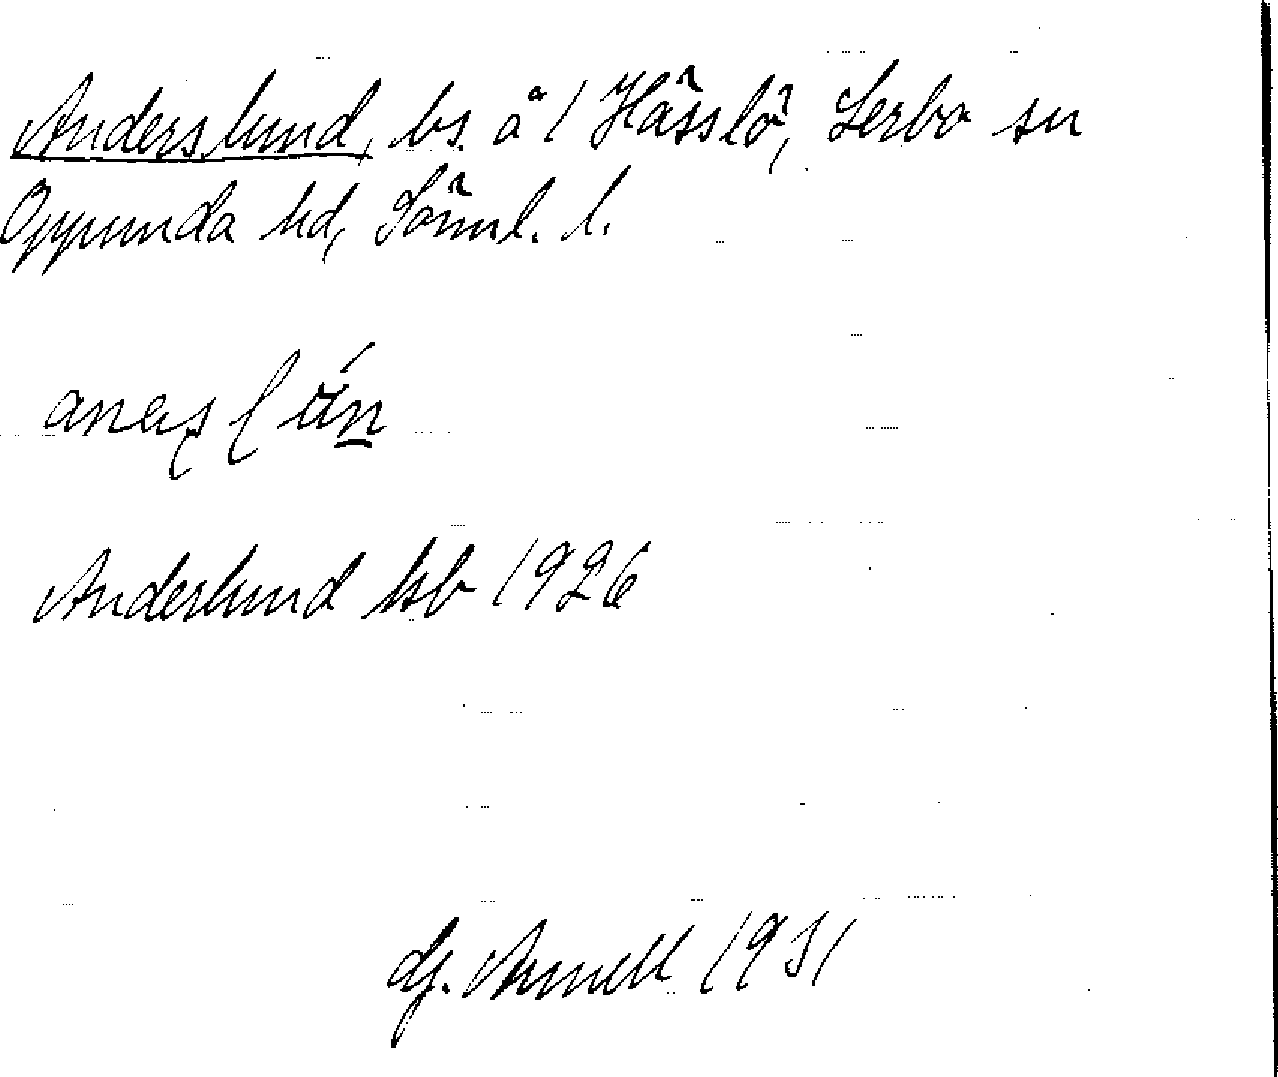 Anderslund, bs. å 1 Hässlö, Lerbo sn
Oppunda hd, Söml. l.
Anderslund hsb 1926
Gj. Arnell 1931